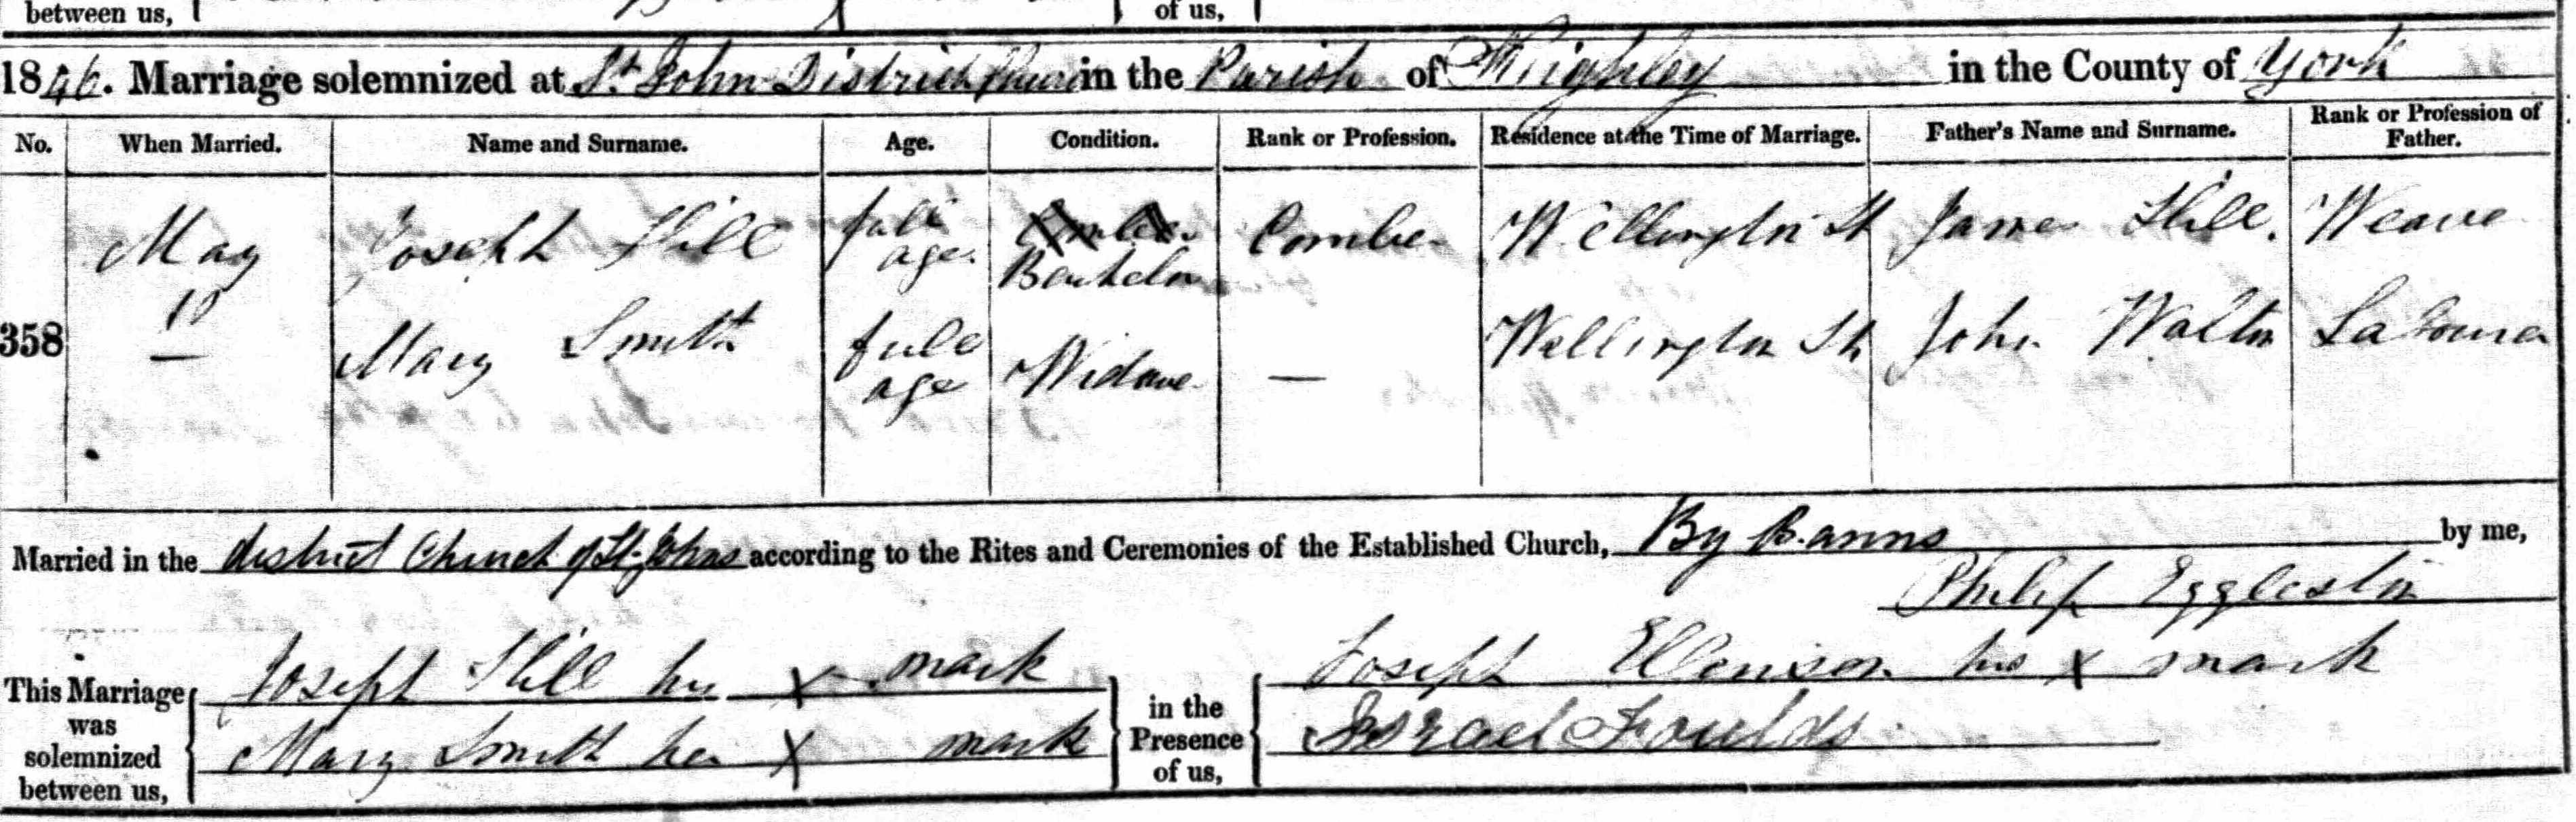 between us,
of us,
1846. Marriage solemnized at St. John District Church in the Parish of Keighley in the County of York
No. When Married. Name and Surname. Age. Condition. Rank or Profession. Residence at the Time of Marriage. Father's Name and Surname. Rank or Profession of Father.
358 May
Joseph Hill full age. Bachelor Comber Wellington St James Hill. Weaver
Mary Smith full age Widow — Wellington St John Walton Labourer
Married in the district Church of St. Johns according to the Rites and Ceremonies of the Established Church, By Banns by me,
Philip Eggleston
This Marriage was solemnized between us,
Joseph Hill his X mark
Mary Smith her X mark
in the Presence of us,
Joseph Ellenson his X mark
Israel Foulds